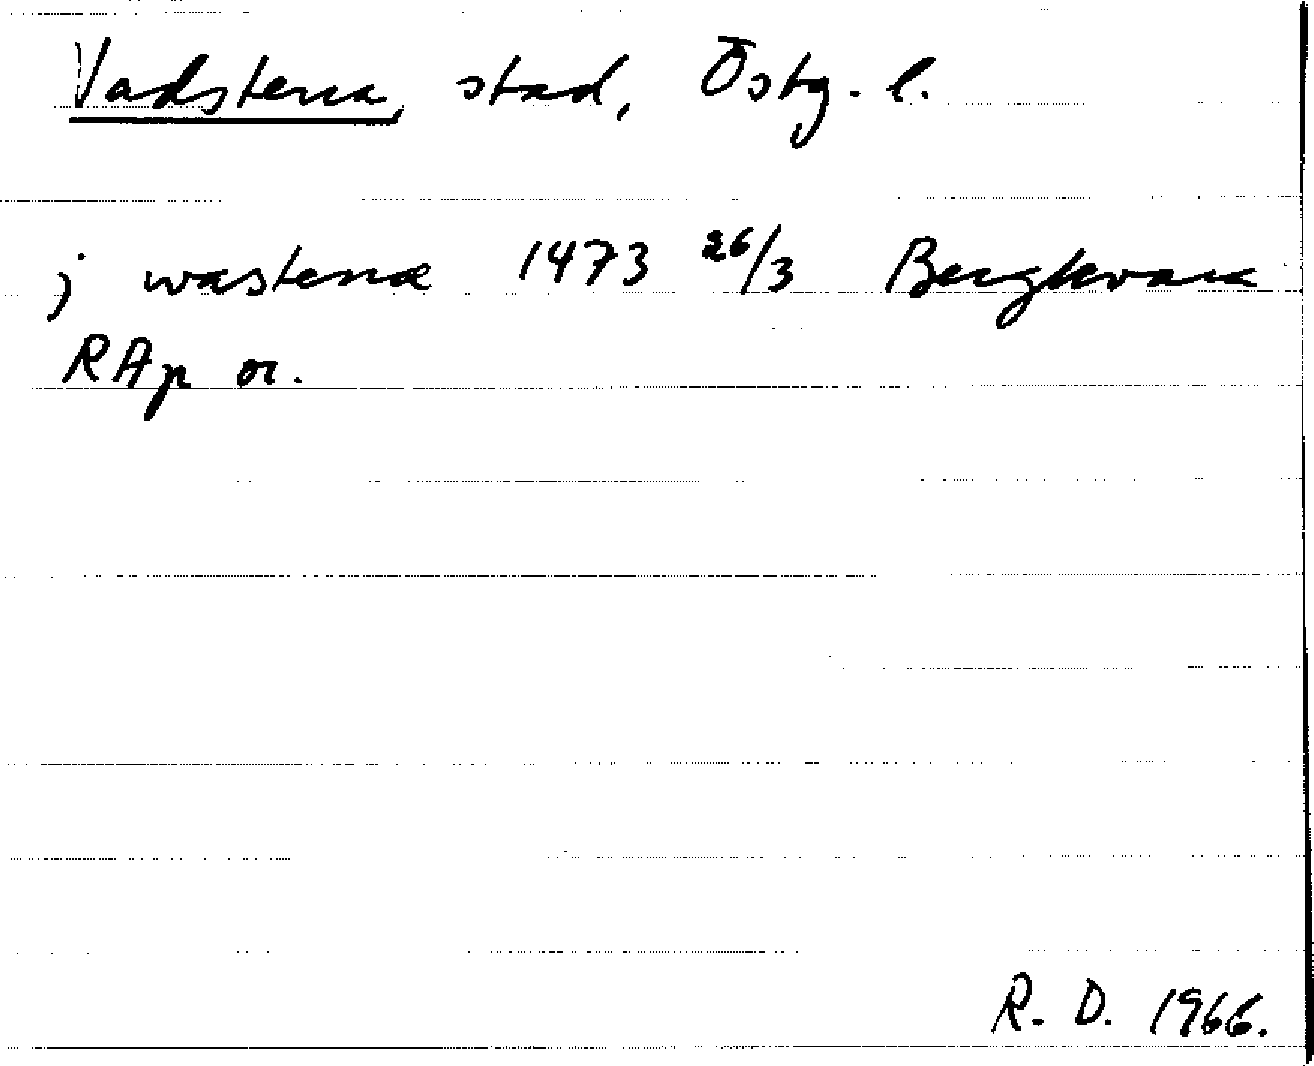 Vadstena, stad, Östg. l.
j wastena 1473 26/3 Bergkvara
RAp or.
R. D. 1966.